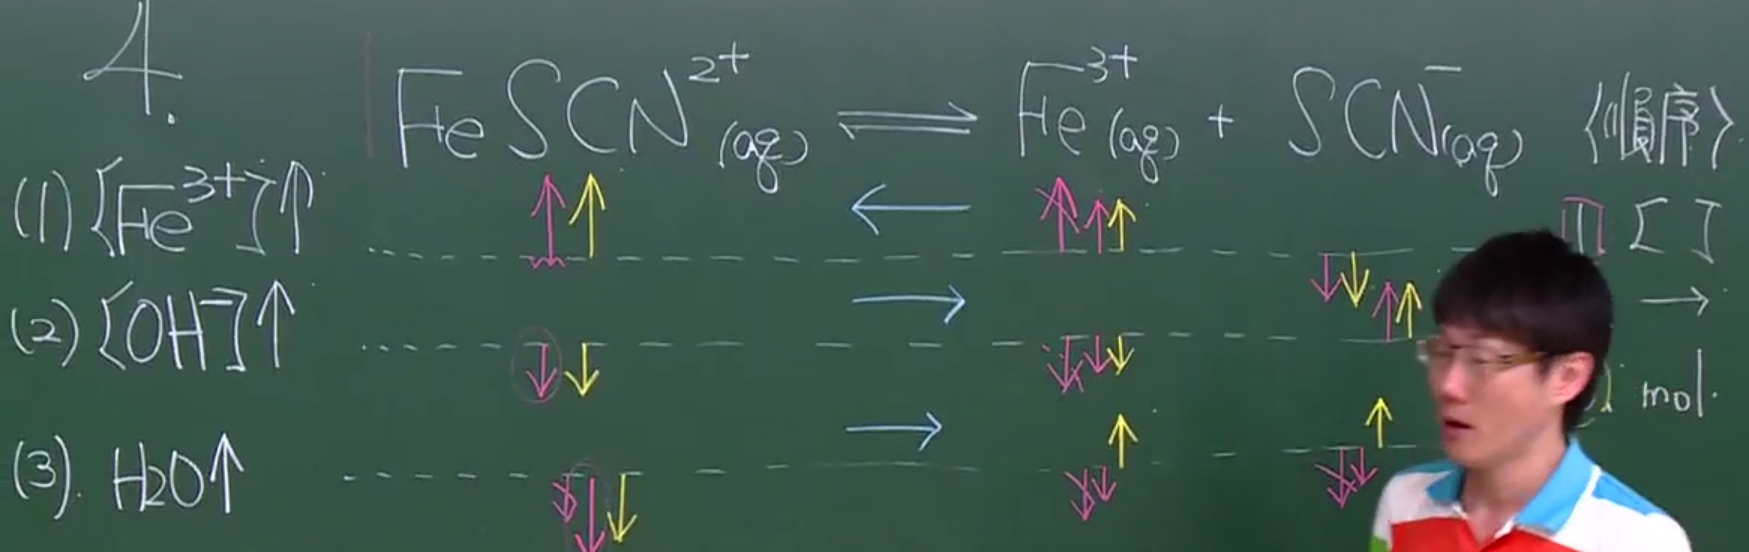 4.
FeSCN²⁺(aq) ⇌ Fe³⁺(aq) + SCN⁻(aq) 〈順序〉
(1) [Fe³⁺]↑ ↑↑ ← ↑↑↑ ↓↓ [ ]
(2) [OH⁻]↑ ↓↓ → ↓↓↓ ↑↑ →
mol
(3). H₂O↑ ↓↓↓ → ↓↓↑ ↓↓↑